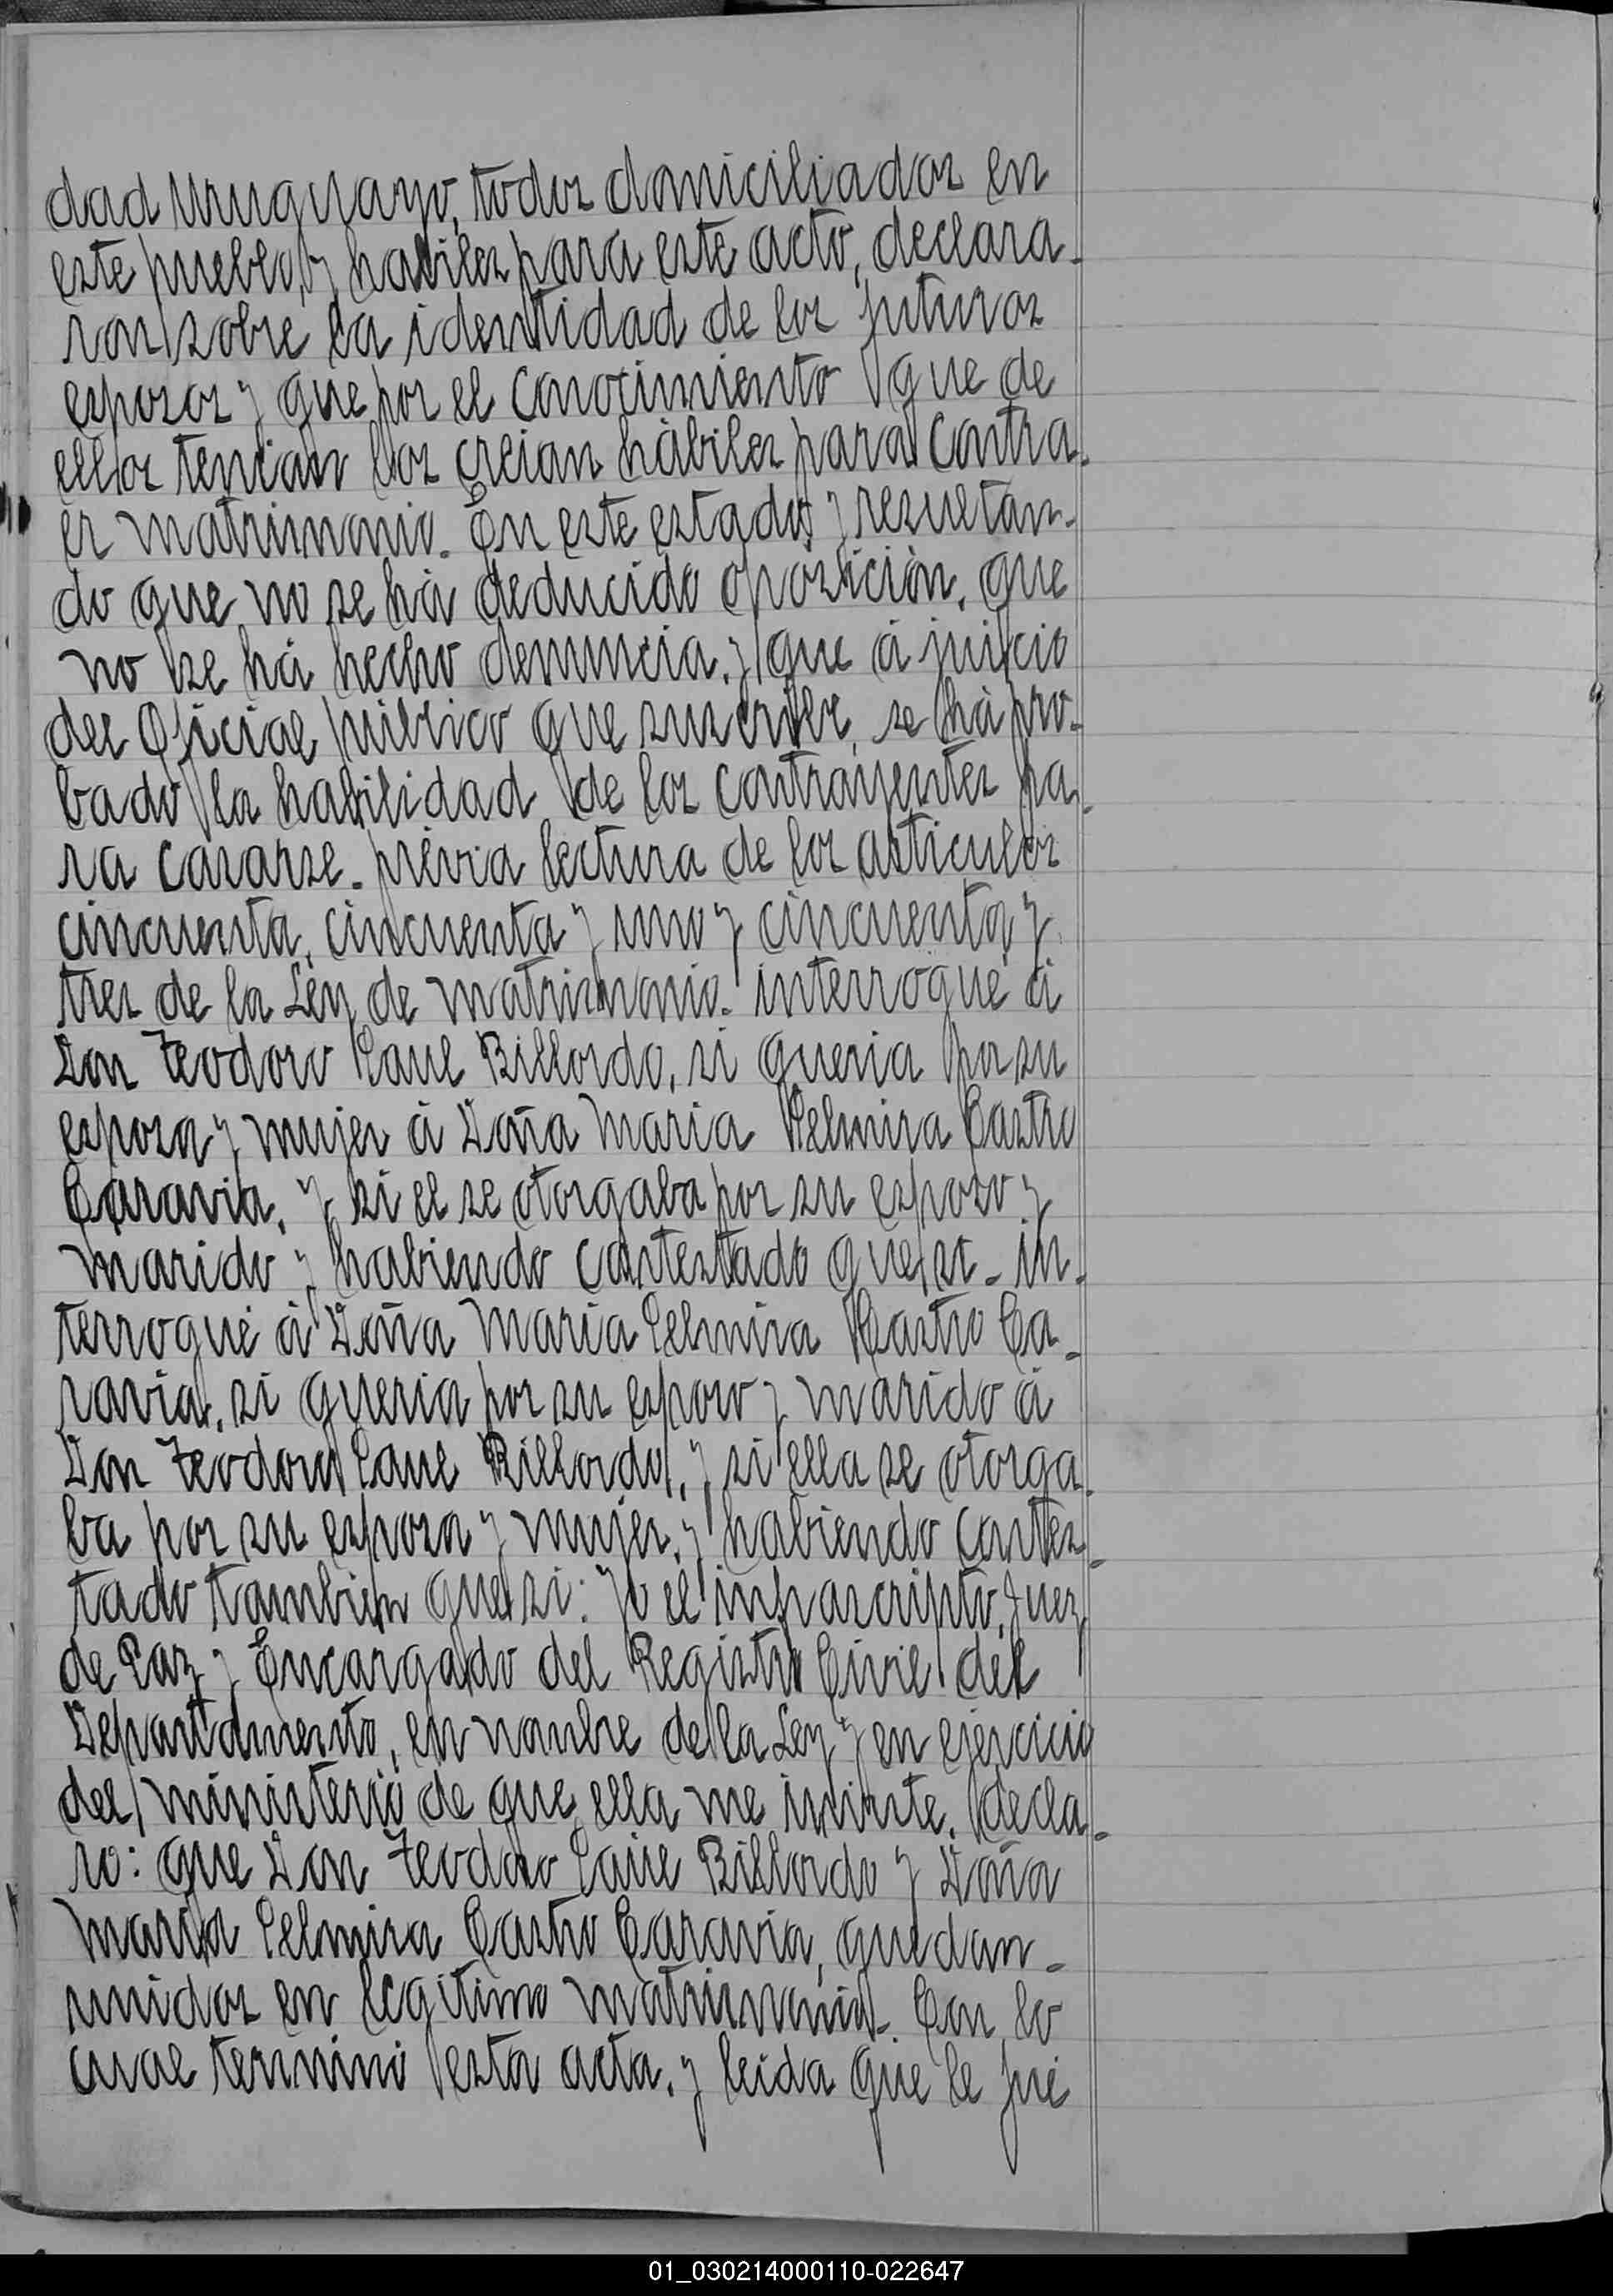 dad Uruguayo, todos domiciliados en
este pueblo, y habiles para este acto, declara-
ron sobre la identidad de los futuros
esposos y que por el conocimiento que de
ellos tenian los creian hàbiles para contra-
er matrimonio. En este estado y resultan-
do que no se hà deducido oposiciòn, que
no se hà hecho denuncia, y que à juicio
del Oficial pùblico que suscribe, se hà pro-
bado la habilidad de los contrayentes pa-
ra casarse. prèvia lectura de los articulos
cincuenta, cincuenta y uno y cincuenta y
tres de la Ley de matrimonio. interroguè à
Don Teodoro Paul Billordo, si queria por su
esposa y mujer à Doña Maria Pelmira Castro
Caravia, y si el se otorgaba por su esposo y
marido y habiendo contestado que si - in-
terroguè à Doña Maria Pelmira Castro Ca-
ravia, si queria por su esposo y marido à
Don Teodoro Paul Billordo, y si ella se otorga-
ba por su esposa y mujer, y habiendo contes-
tado tambien que si: Yo el infrascripto, Juez
de Paz y Encargado del Registro Civil del
Departamento, en nombre de la Ley y en ejercicio
del ministerio de que ella me inviste, decla-
ro: que Don Teodoro Paul Billordo y Doña
Maria Pelmira Castro Caravia, quedan -
unidos en legitimo matrimonio. Con lo
cual terminò esta acta, y leida que le fuè
01_030214000110-022647